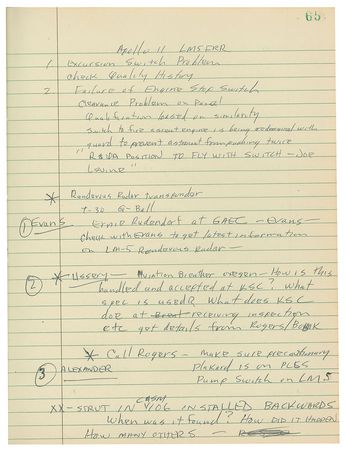 65
Apollo 11 LM5 FRR
1. Excursion Switch Problem
Check Quality History
2. Failure of Engine Stop Switch
Clearance Problem on Panel
Qualification based on similarity
Switch to fire ascent engine is being redesigned with
guard to prevent astronaut from pushing twice
"R&QA POSITION TO FLY WITH SWITCH - Joe
Levine"
* Rendezvous Radar Transponder
7-30 Q-Ball
① Evans Ernie Rudendorf at GAEC - Evans -
Check with Evans to get latest information
on LM-5 Rendezvous Radar -
② * - Ussery - Aviation Breather oxygen - How is this
handled and accepted at KSC? What
spec is used? What does KSC
doe at receiving inspection
etc get details from Rogers/
* Call Rogers - make sure precautionary
Plakard is on PLSS
③ ALEXANDER Pump Switch in LM5
XX - STRUT IN CASM INSTALLED BACKWARDS
When was it found? How DID IT HAPPEN
How MANY OTHERS -